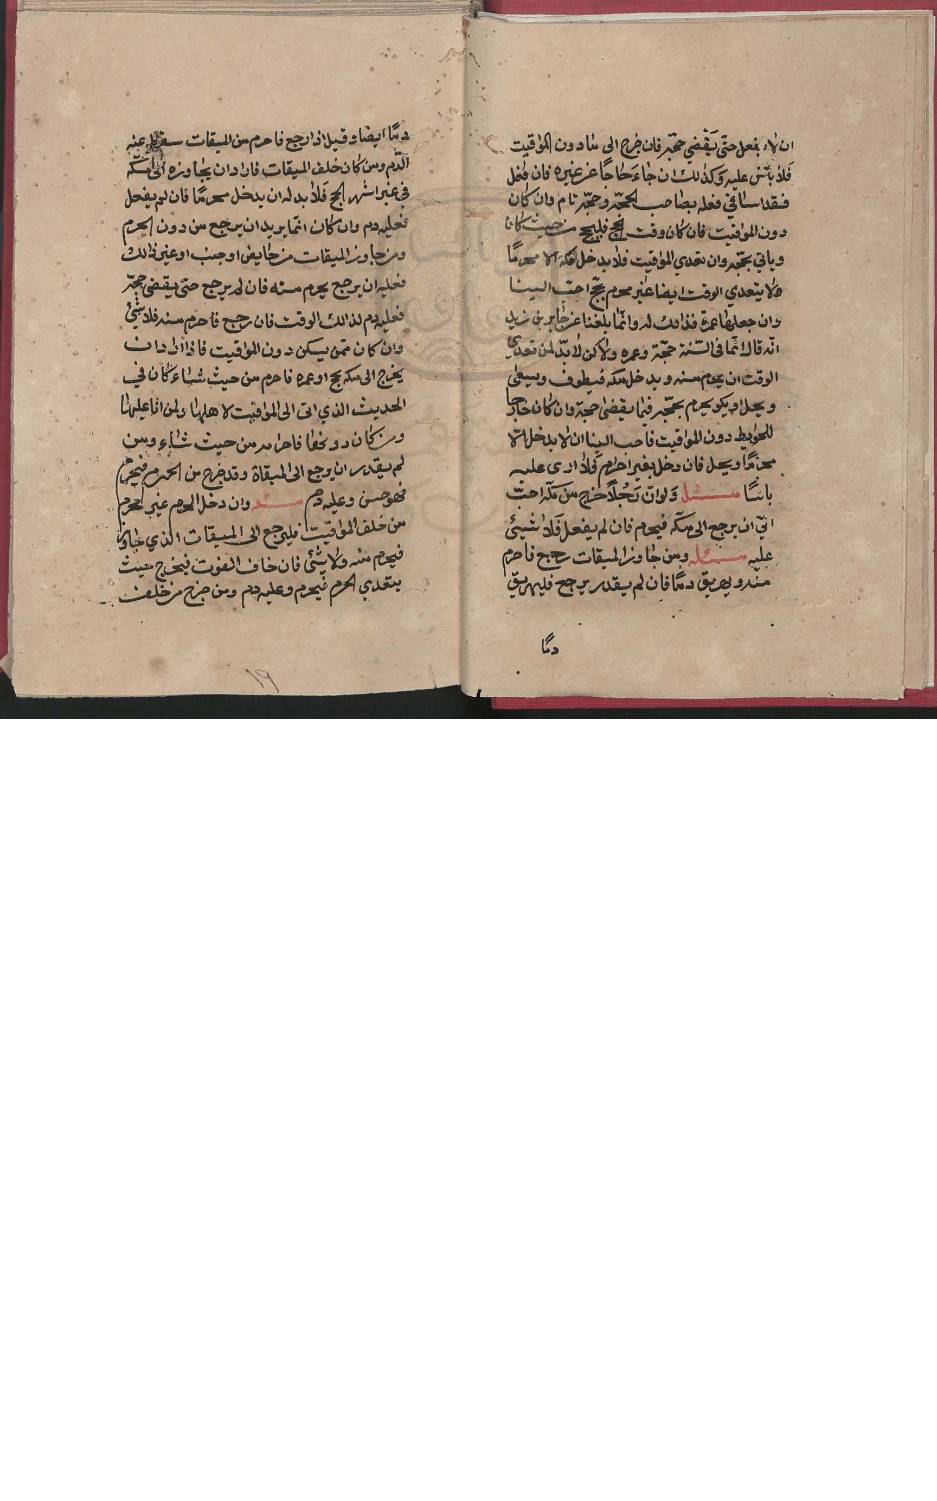 ان لا يفعل حتى يقضي حجه فان خرج الى ما دون المواقيت
فلا باس عليه وكذلك ان جاء حاجا عن غيره فان فعل
فقد اسا في فعله بصاحب الحجة وحجه تام وان كان
دون المواقيت فان كان وقت الحج فليحج من حيث كان
وياتي بحجه وان تعدي المواقيت فلا يدخل مكة الا محرمًا
ولا يتعدي الوقت ايضا غير محرم بحج احب الينا
وان جعلها عمرة فذلك له وانما بلغنا عن جابر بن زيد
انه قال انما في السنة حجة وعمره ولاكن لا بد لمن تعدي
الوقت ان يحرم منه ويدخل مكه فيطوف ويسعى
ويحل او يكو يحرم بحجه فيما يقضى حجة وان كان خارجا
للحوايط دون المواقيت فاحب الينا ان لا يدخل الا
محرمًا ويحل فان دخل بغير احرام فلا ارى عليه
باسًا مسئله ولو ان رجلاً خرج من مكة احب
الي ان يرجع الى مكه فيحرم فان لم يفعل فلا شيئ
عليه مسئله ومن جاوز الميقات رجع فاحرم
منه ويهريق دمًا فان لم يقدر يرجع فليهريق
دمًا
دمًا ايضا وقيل اذا رجع فاحرم من الميقات سقط عنه
الدم ومن كان خلف الميقات فاراد ان يجاوزه الى مكة
في غير اشهر الحج فلا بد له ان يدخل محرمًا فان لم يفعل
فعليه دم وان كان انما يريد ان يرجع من دون الحرم
ومن جاوز الميقات من حايض او جنب او غير ذلك
فعليه ان يرجع يحرم منه فان لم يرجع حتى يقضي حجه
فعليه دم لذالك الوقت فان رجع فاحرم منه فلا شئ
وان كان ممن يسكن دون المواقيت فاذا اراد ان
يخرج الى مكه بحج او عمره فاحرم من حيث شاء كان في
الحديث الذي اتى الى المواقيت لاهلها ولمن اتا عليها
ومن كان دونها فاحرامه من حيث شاء ومن
لم يقدر ان يرجع الى الميقاة وقد خرج من الحرم فيحرم
فهو حسن وعليه دم مسئله وان دخل الحرم غير محرم
من خلف المواقيت فليرجع الى الميقات الذي جاوز
فيحرم منه ولا شئ فان خاف الفوت فيخرج حيث
يتعدي الحرم فيحرم وعليه دم ومن خرج من خلف
١٩